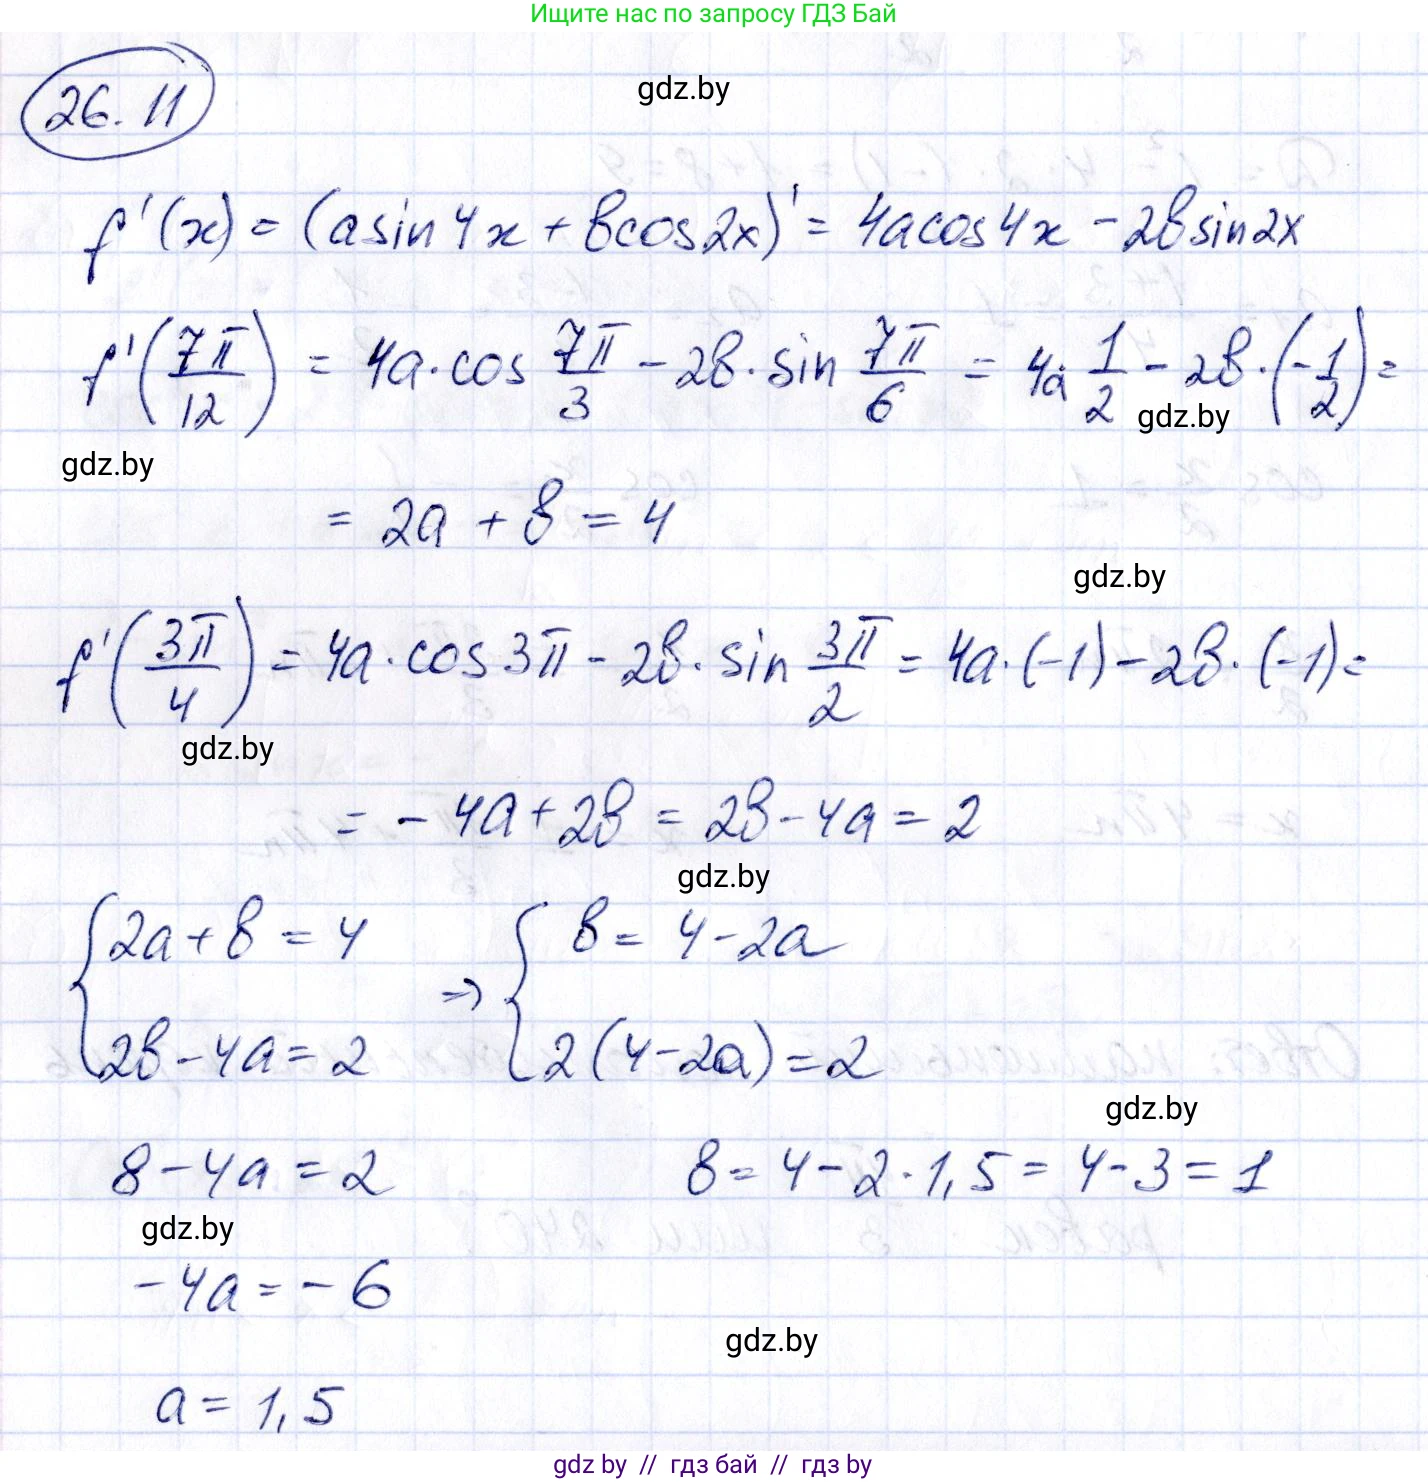 Ищите нас по запросу ГДЗ Бай
26.11
gdz.by
f'(x) = (asin4x + bcos2x)' = 4acos4x - 2bsin2x
f'(7π/12) = 4a·cos 7π/3 - 2b·sin 7π/6 = 4a·1/2 - 2b·(-1/2) =
gdz.by
gdz.by
= 2a + b = 4
gdz.by
f'(3π/4) = 4a·cos3π - 2b·sin 3π/2 = 4a·(-1) - 2b·(-1) =
gdz.by
= - 4a + 2b = 2b - 4a = 2
gdz.by
{ 2a + b = 4 ⇒ { b = 4 - 2a
2b - 4a = 2 2(4-2a) = 2
gdz.by
8 - 4a = 2 b = 4 - 2·1,5 = 4 - 3 = 1
gdz.by
- 4a = - 6
gdz.by
a = 1,5
gdz by // гдз бай // гдз by